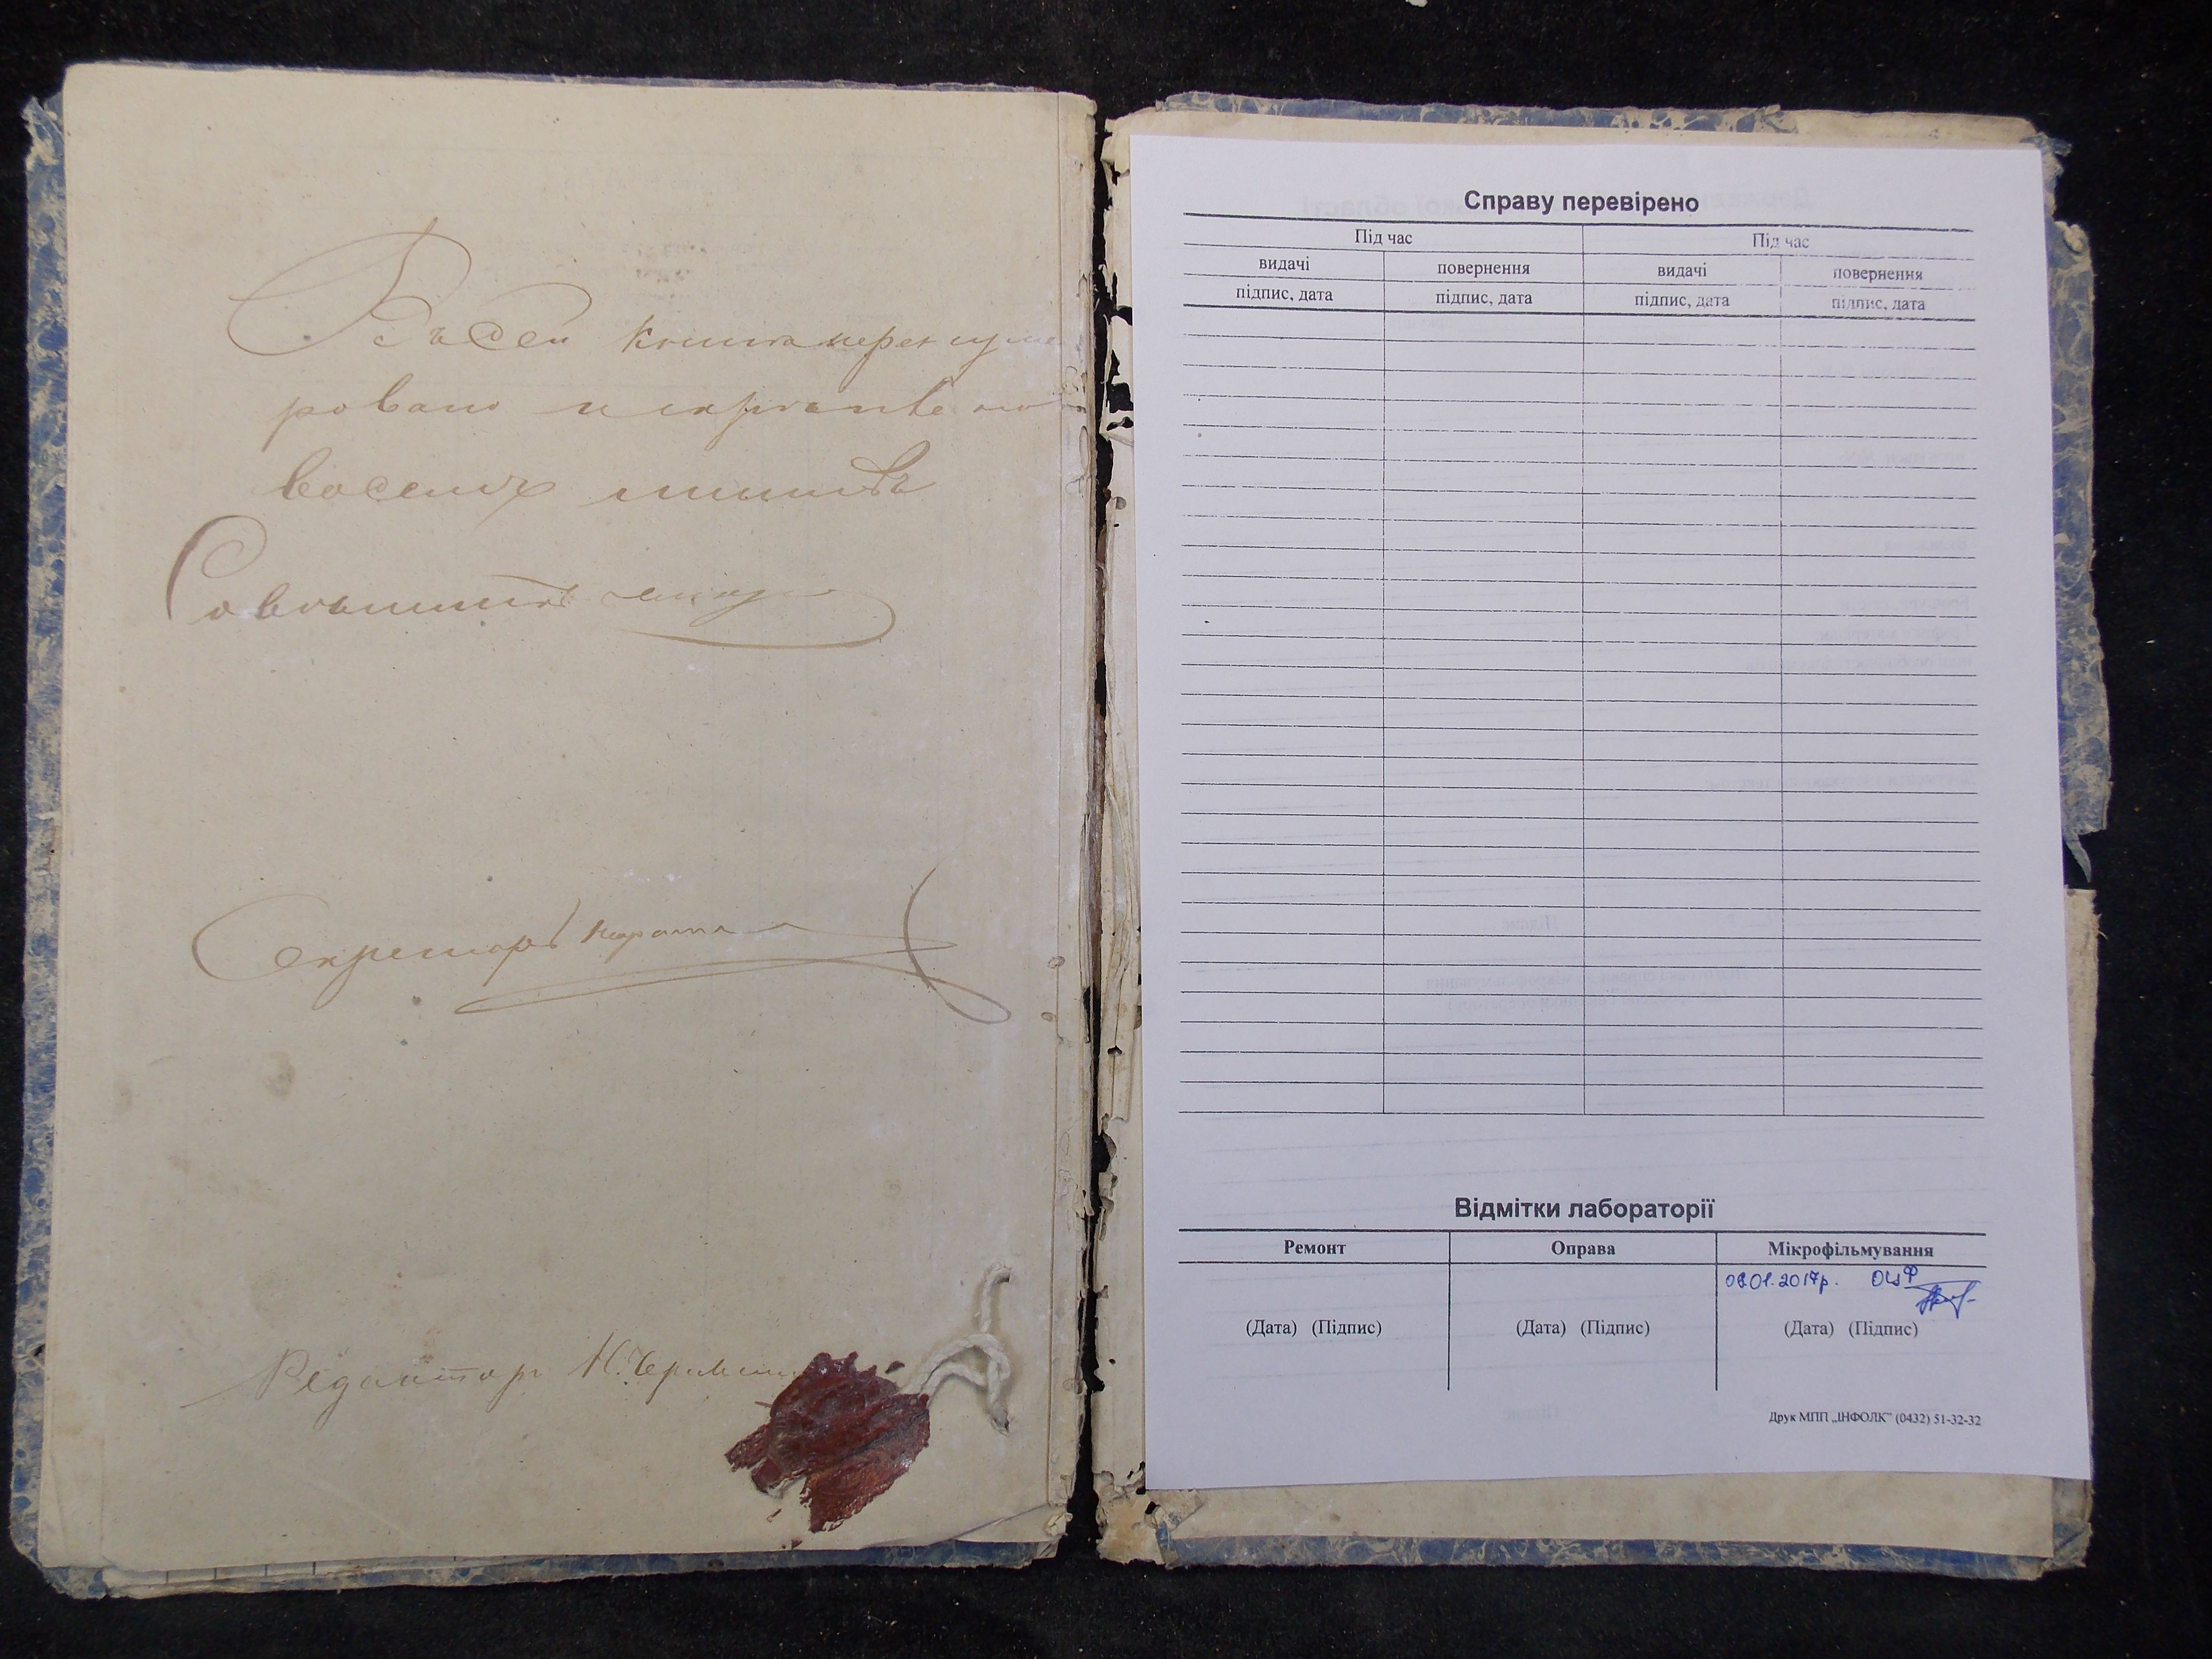 Въ сей книга перенуме
ровано и
восемь листовъ
Совѣтникъ
Секретарь
Редакторъ Н.
Справу перевірено
Під час Під час
видачі повернення видачі повернення
підпис, дата підпис, дата підпис, дата підпис, дата
Відмітки лабораторії
Ремонт Оправа Мікрофільмування
2017р. ОЦФ
(Дата) (Підпис) (Дата) (Підпис) (Дата) (Підпис)
Друк МПП „ІНФОЛК” (0432) 51-32-32